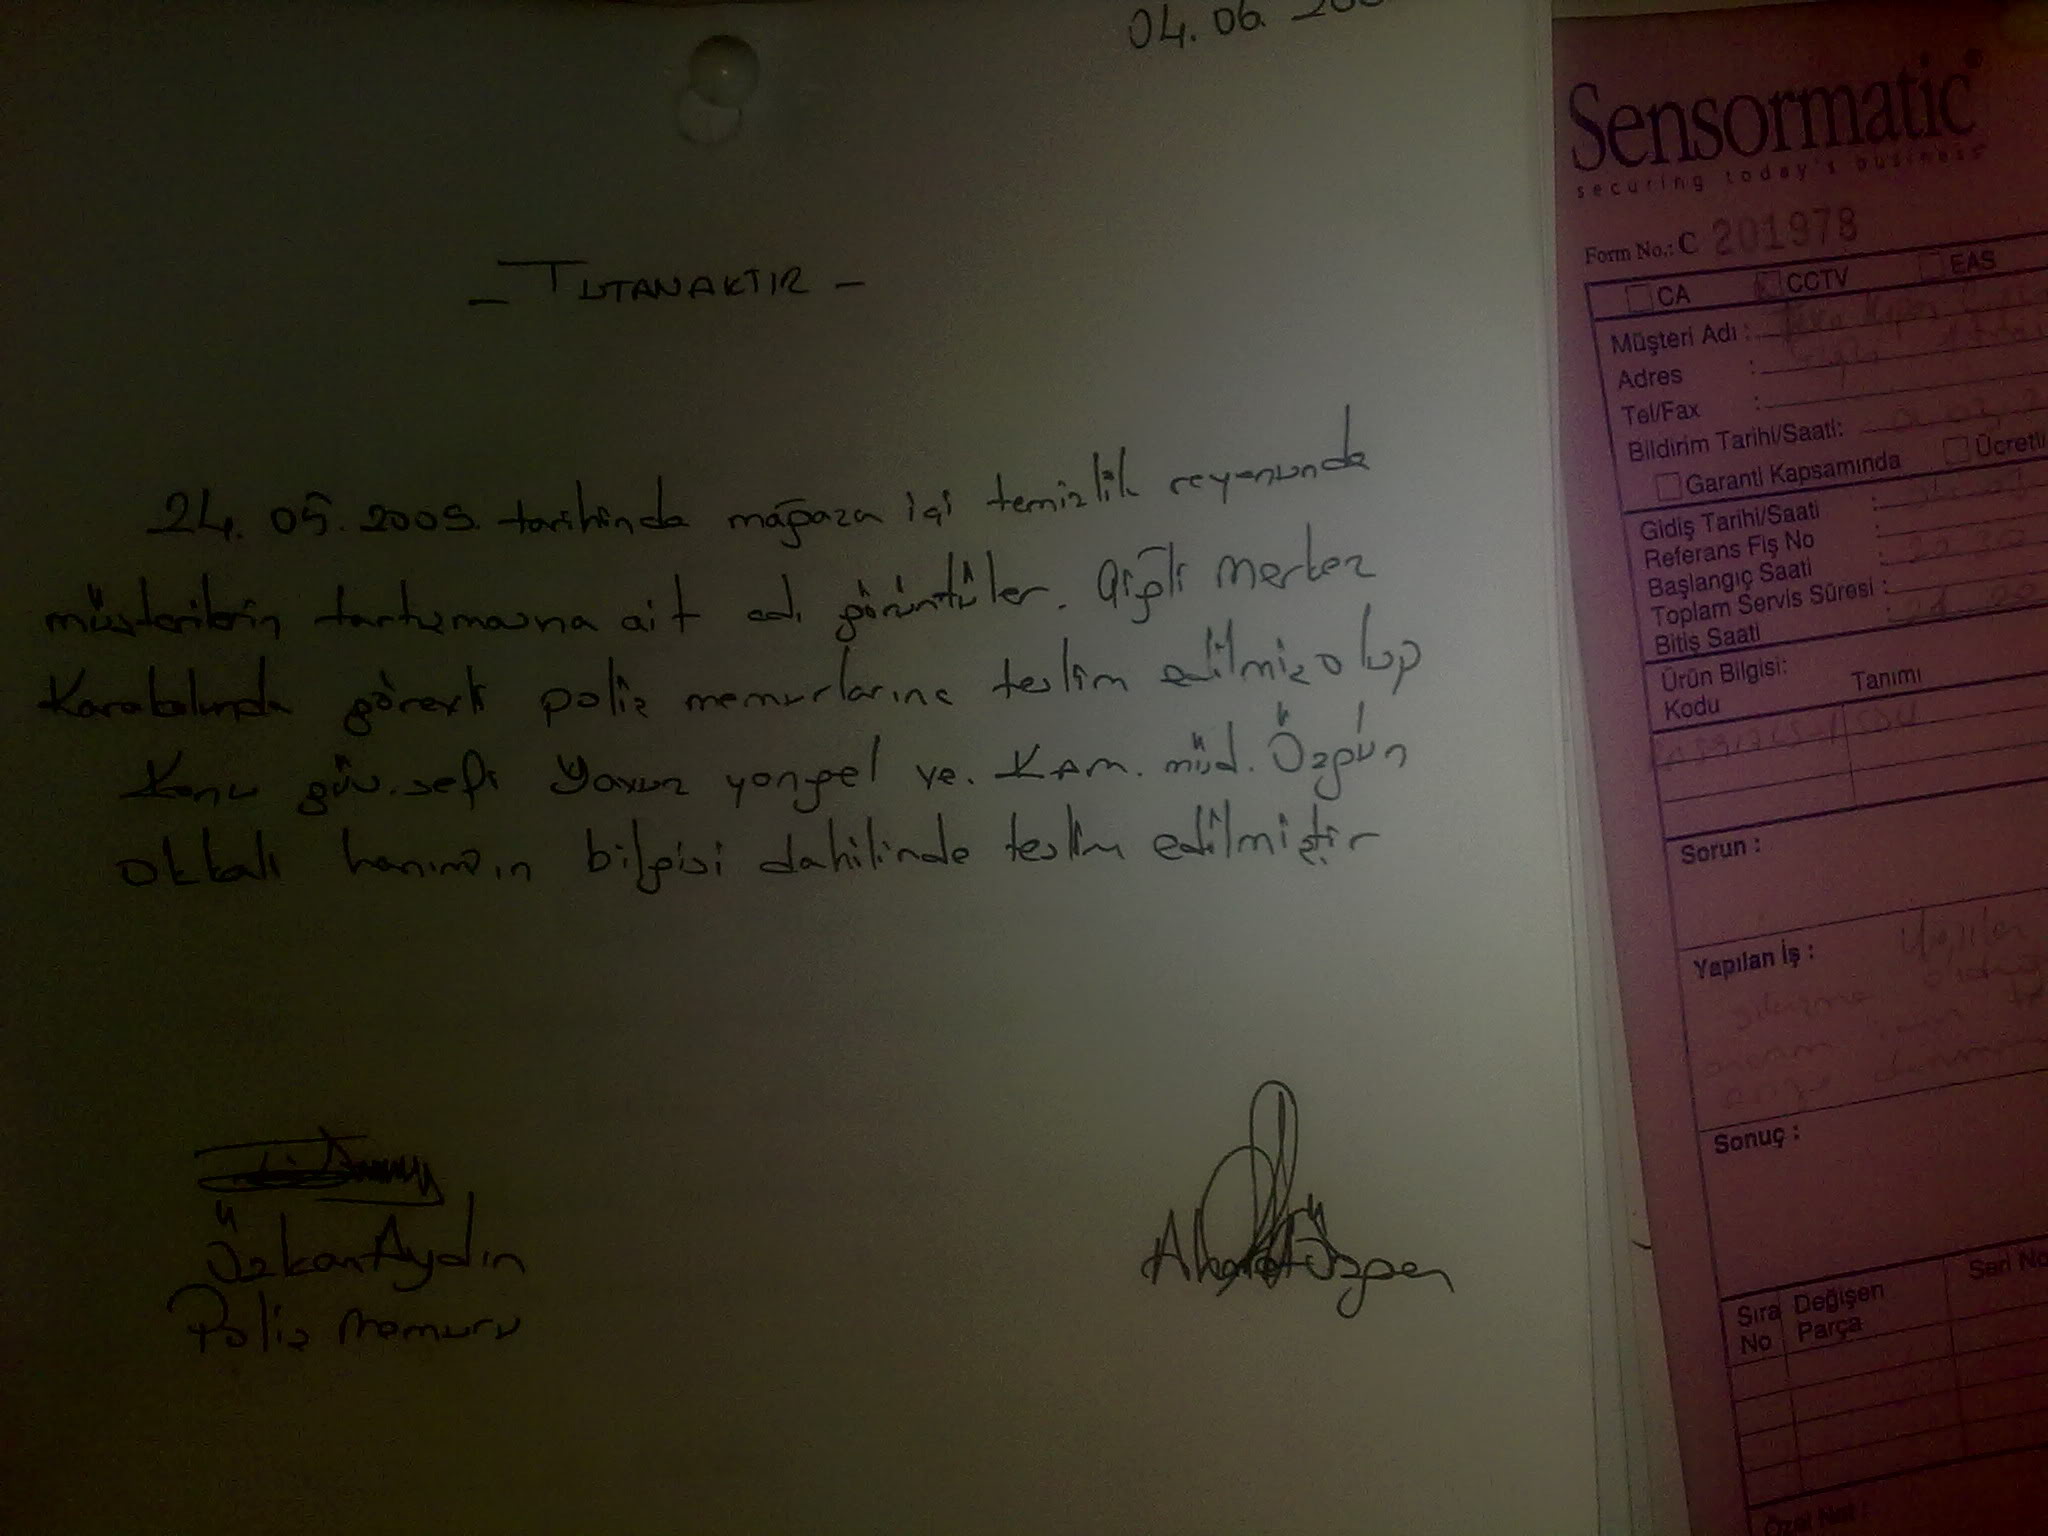 04. 06.
- TUTANAKTIR -
24. 05. 2005. tarihinde mağaza içi temizlik reyonunda
müşterilerin tartışmasına ait cdı görüntüler. Çiğli Merkez
Karakolunda görevli poliz memurlarına teslim edilmiş olup
Konu güv. şefi Yavuz yongel ve. KAM. müd. Özgün
okkalı hanımın bilgisi dahilinde teslim edilmiştir
Özkan Aydın
Polis Memuru
Özgen
Sensormatic
securing today's business
Form No.: C 201978
CA CCTV EAS
Müşteri Adı :
Adres :
Tel/Fax :
Bildirim Tarihi/Saati:
Garanti Kapsamında Ücretli
Gidiş Tarihi/Saati :
Referans Fiş No :
Başlangıç Saati :
Toplam Servis Süresi :
Bitiş Saati :
Ürün Bilgisi:
Kodu Tanımı
Sorun :
Yapılan İş :
Sonuç :
Sıra No Değişen Parça Seri No